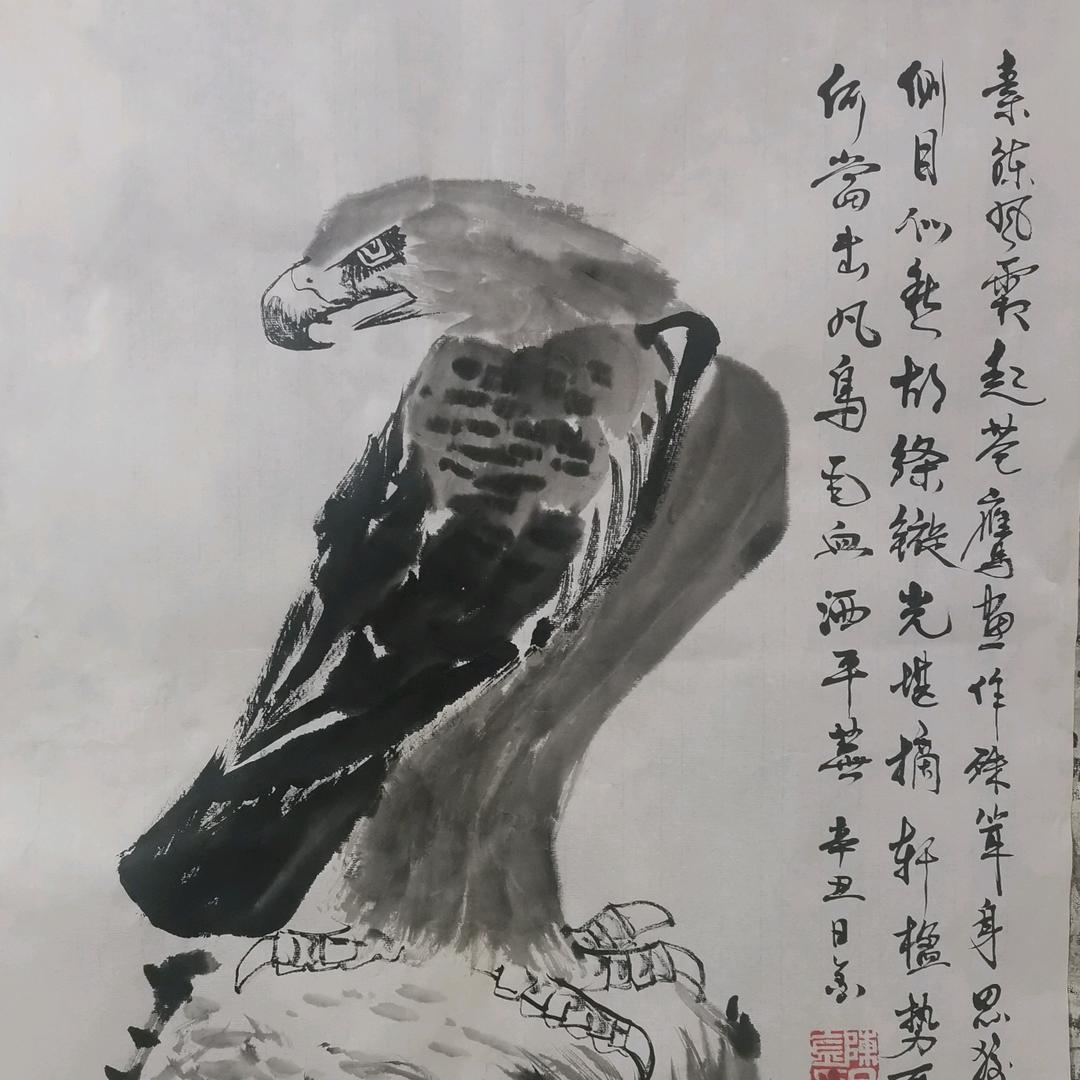 素练风霜起苍鹰畫作殊耸身思狡
侧目似愁胡绦镟光堪摘轩楹势
何當击凡鳥毛血洒平蕪 辛丑日
陳